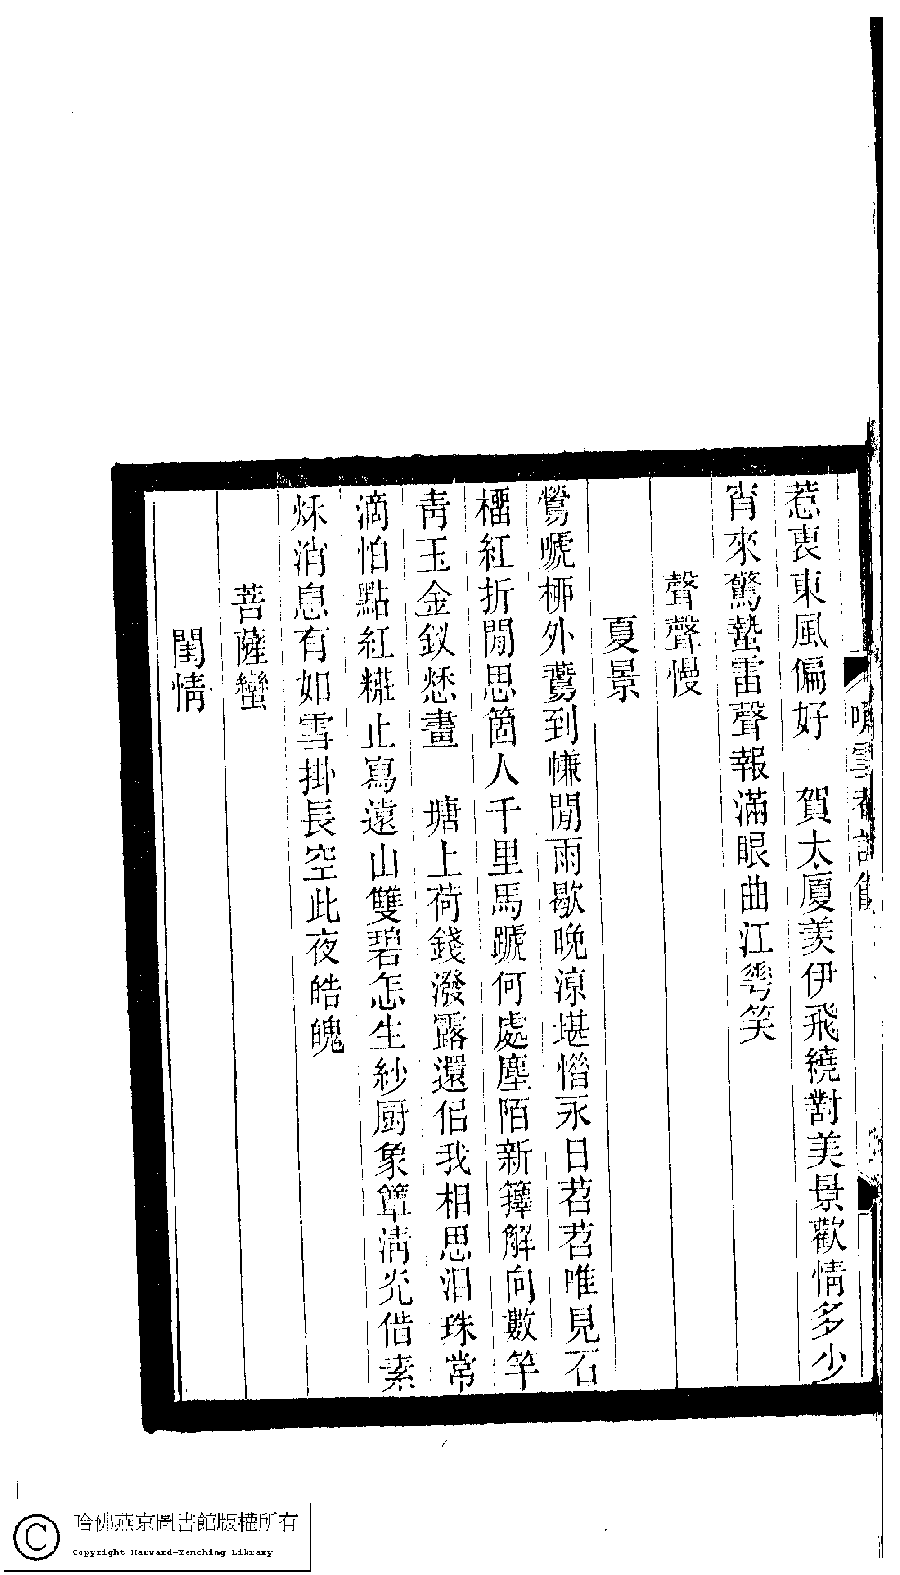 雪菴詩
惹衷東風偏好　賀太厦羨伊飛繞對美景歡情多少
宵來驚蟄雷聲報滿眼曲江𠌶笑
聲聲慢
夏景
鶯嗁桺外鷰到㡘閒雨歇晚涼堪惜永日苕苕唯見石
橊紅折閒思箇人千里馬蹏何處塵陌新籜解向數竿
靑玉金釵愁畫　塘上荷錢潑露還侣我相思泪珠常
滴怕點紅糚止寫遠山雙碧怎生紗厨象簟淸光偕素
秌消息有如雪掛長空此夜皓魄
菩薩蠻
閨情
哈佛燕京圖書館版權所有
Copyright Harvard-Yenching Library